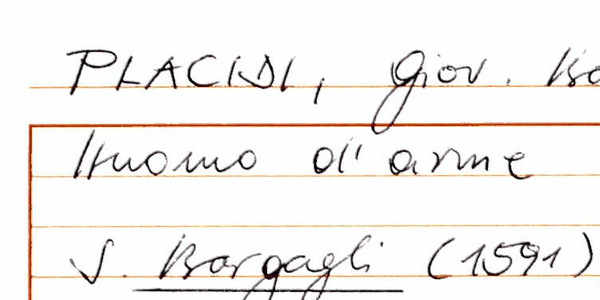 PLACIDI, Giov.
Huomo d'arme
V. Bargagli (1591)